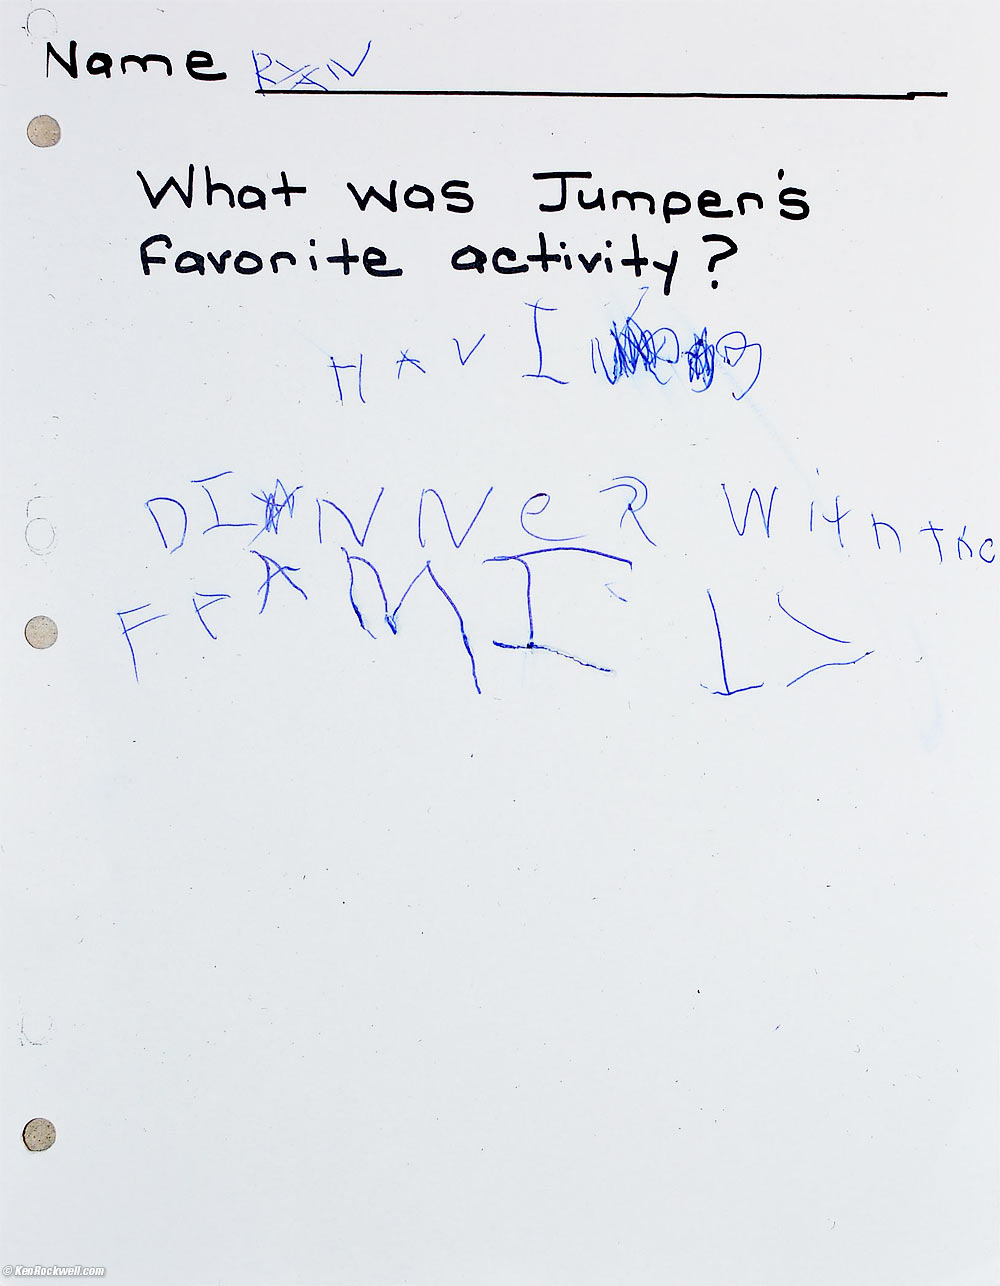 Name RYAN
What was Jumper's
favorite activity?
HAVING
DINNER With the
FFAMIL
© KenRockwell.com